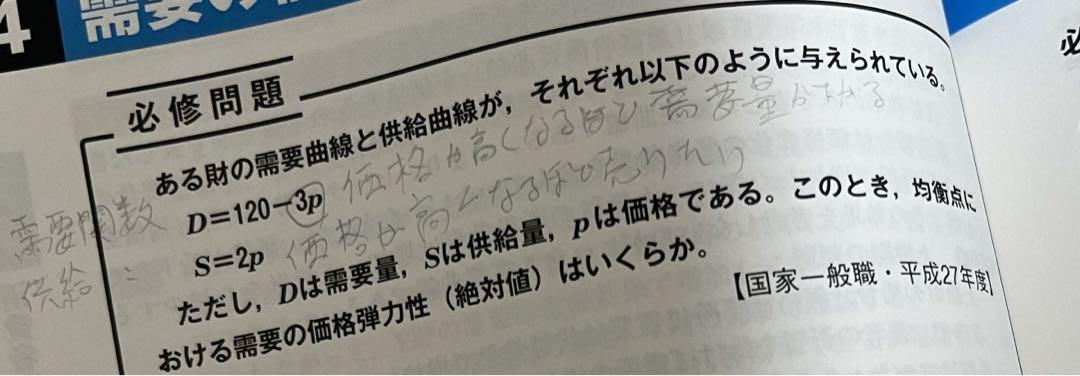 4 需要の
必修問題
ある財の需要曲線と供給曲線が，それぞれ以下のように与えられている。
需要関数 D＝120－3p 価格が高くなるほど需要量が
供給： S＝2p 価格が高くなるほど売りたい
ただし，Dは需要量，Sは供給量，pは価格である。このとき，均衡点に
おける需要の価格弾力性（絶対値）はいくらか。
【国家一般職・平成27年度】
必